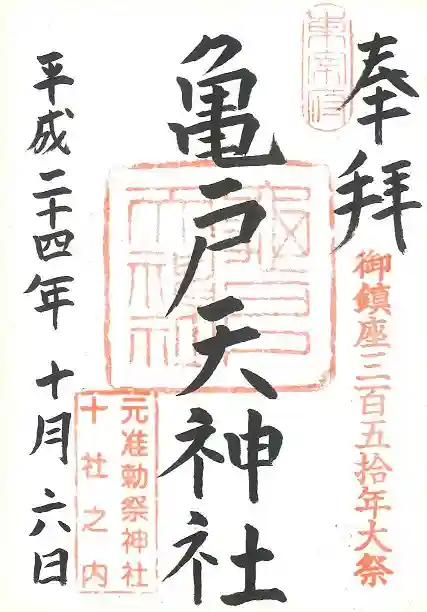 奉拝
御鎮座三百五拾年大祭
亀戸天神社
元准勅祭神社
十社之内
平成二十四年 十月 六日